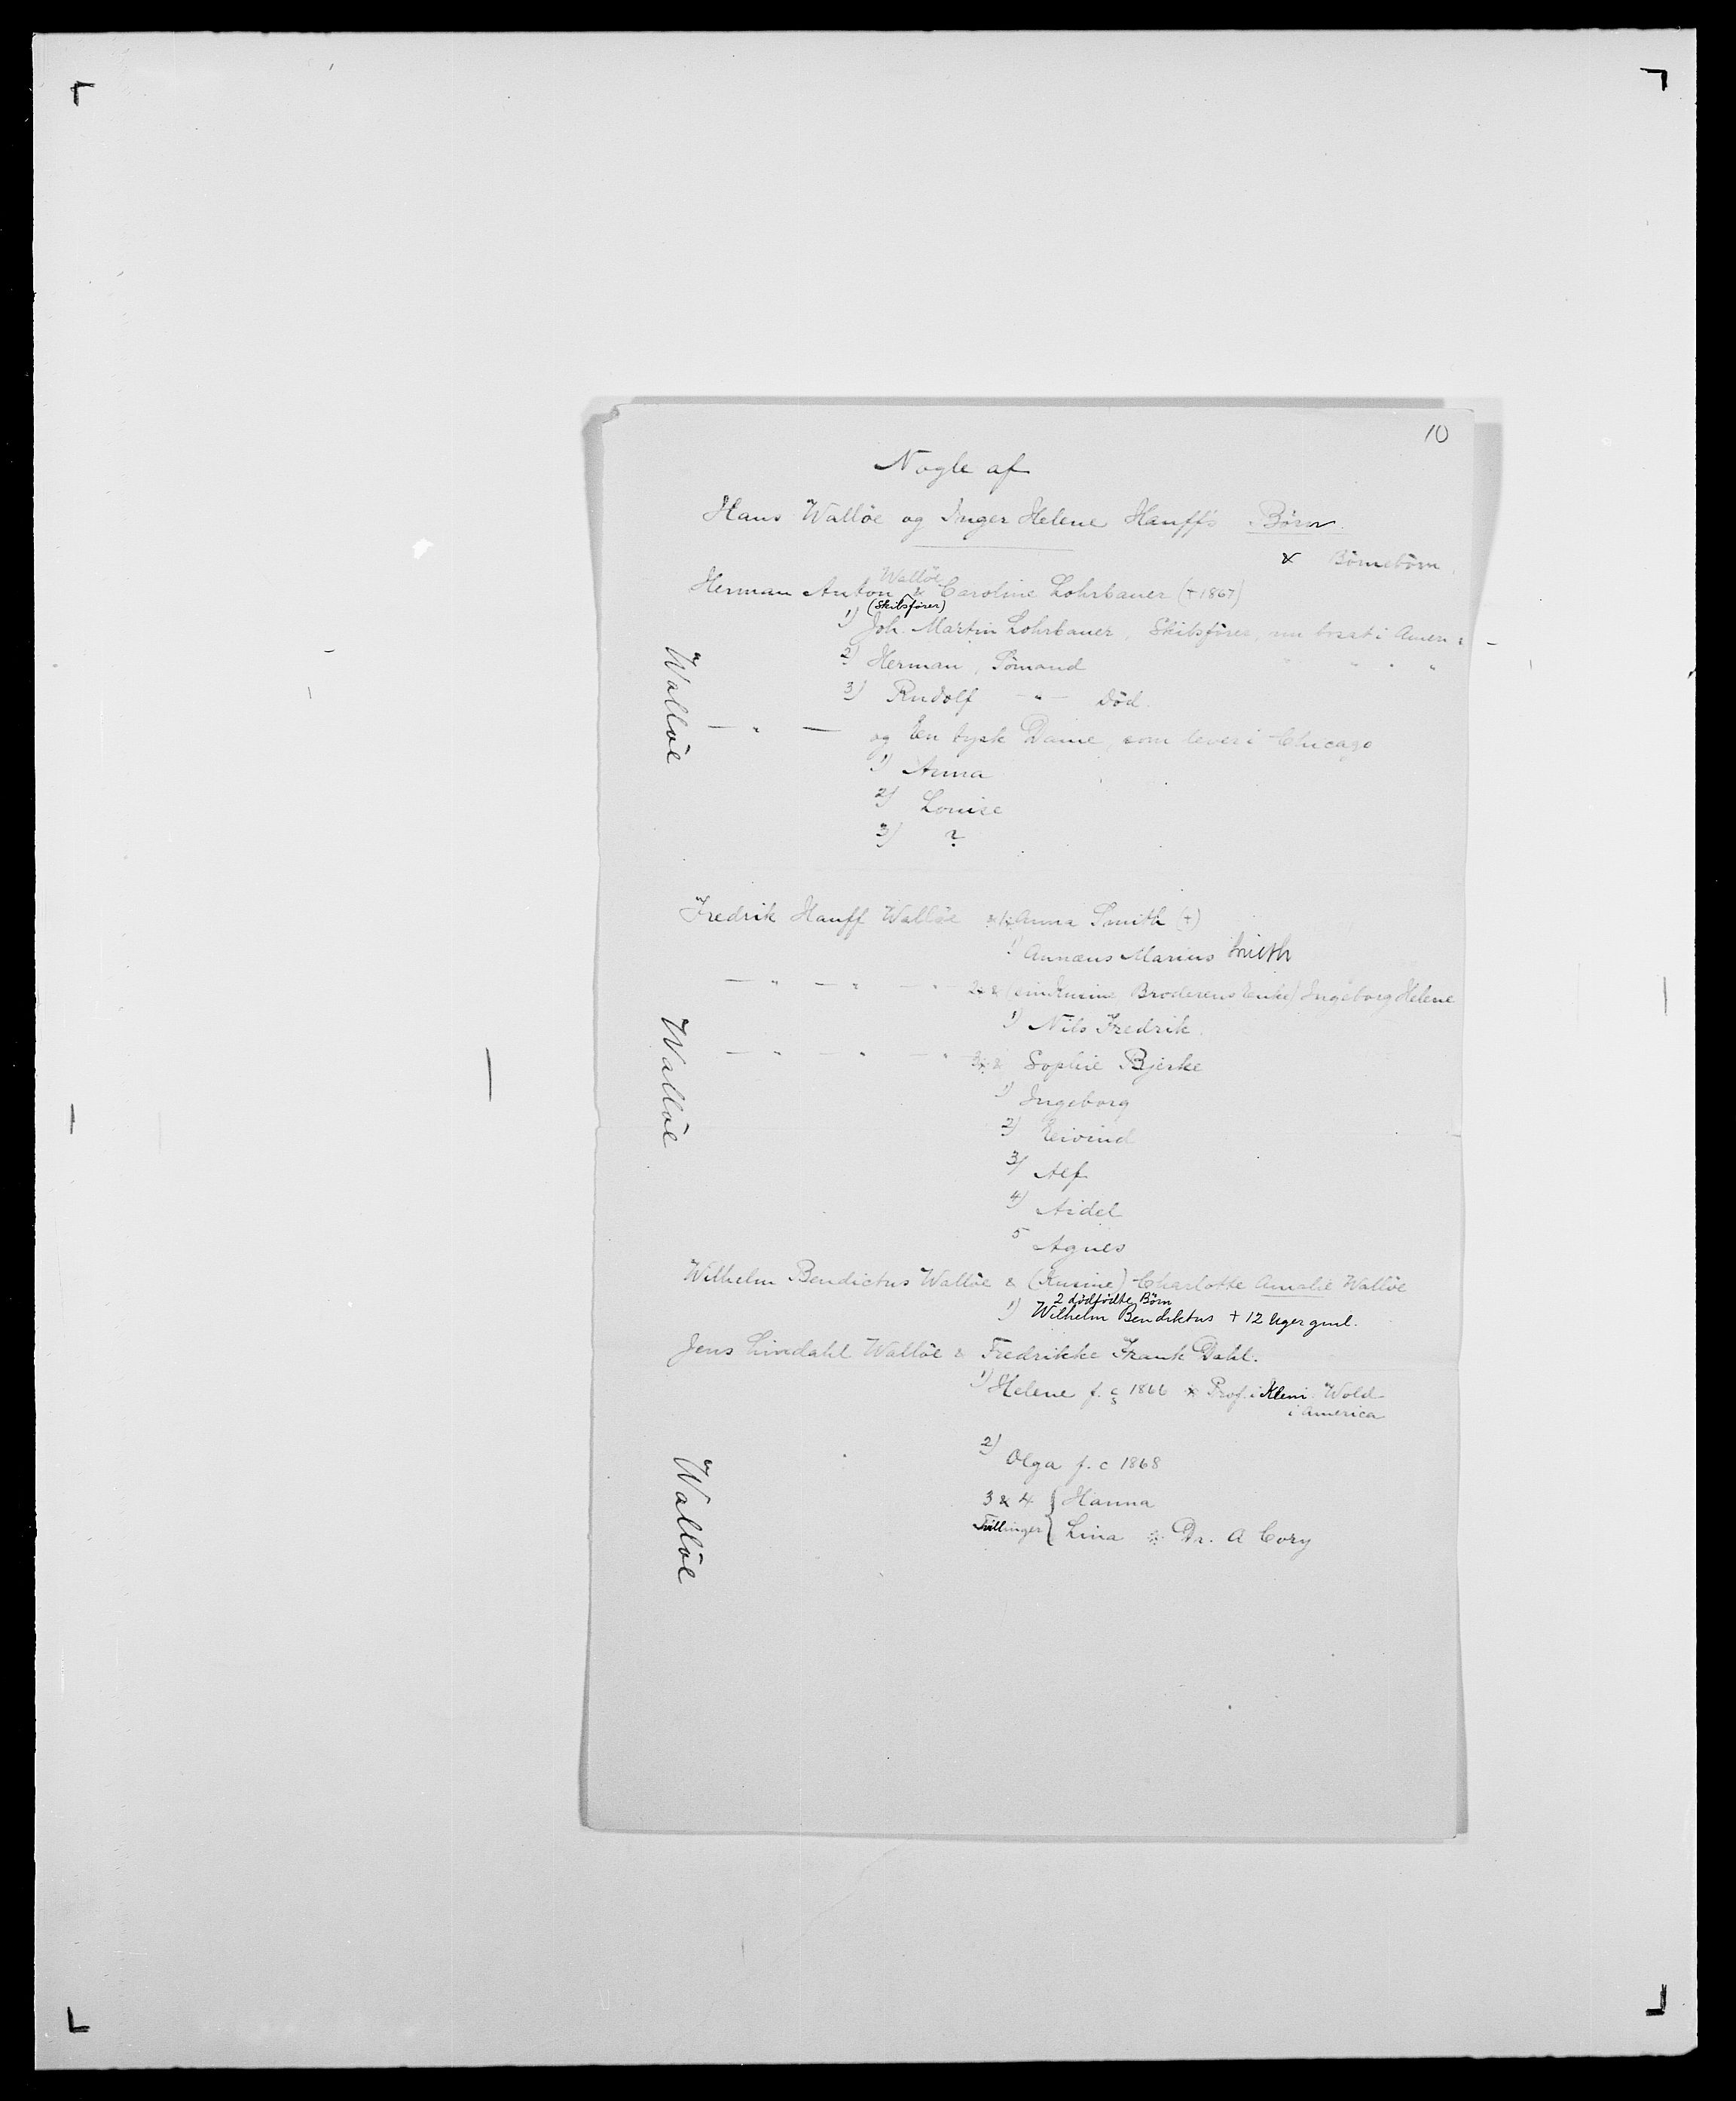 10
Nogle af
Hans Wallöe og Inger Helene Hauff's Børn.
& Börnebörn.
Wallöe
Herman Anton & Caroline Lohrbauer (+1867)
(Skibsfører)
1) Joh. Martin Lohrbauer, Skibsfører, nu bosat i Amer
2) Herman, Sömand " " " "
3) Rudolf — " — Död.
— " — og En tysk Dame, som lever i Chicago
1) Anna
2) Louise
3) ?
Wallöe
Fredrik Hauff Wallöe & Anna Smith (+)
1) Annæus Marius Smith
— " — " — " — 2 & (sin Kusine Broderens Enke) Ingeborg Helene
1) Nils Fredrik.
— " — " — " — 3 & Sophie Bjerke
1) Ingeborg
2) Eivind
3) Alf
4) Aidel
5 Agnes
Wallöe
Wilhelm Bendictus Wallöe & (Kusine) Charlotte Amalie Wallöe
2 dödfödte Börn
1) Wilhelm Bendiktus + 12 Uger gml.
Jens Lindahl Wallöe & Fredrikke Frank Dahl.
1) Helene f. c 1866 & Prof. i Kemi Wold
i America
2) Olga f. c 1868
3 & 4 { Hanna
Tvillinger { Lina & Dr. A Cory
Wallöe